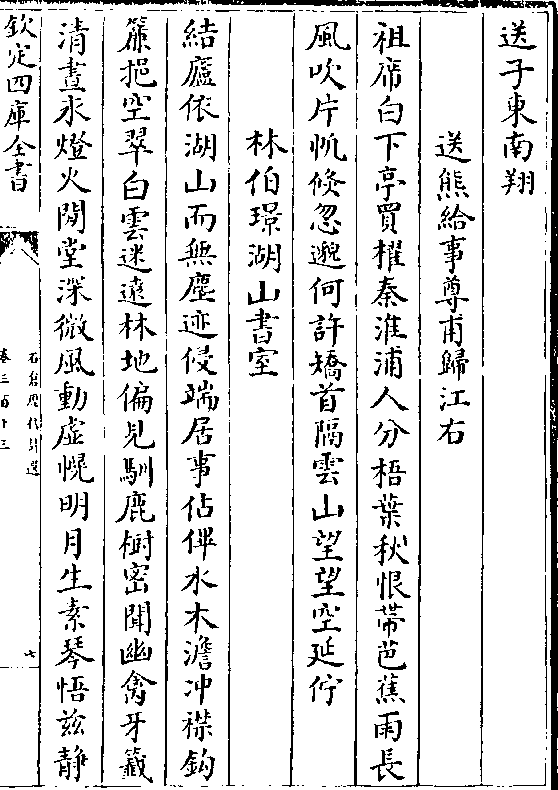 送子東南翔
送熊給事尊甫歸江右
祖席白下亭買櫂秦淮浦人分梧葉秋恨帶芭蕉雨長
風吹片帆倏忽邈何許矯首隔雲山望望空延佇
林伯璟湖山書室
結廬依湖山而無塵迹侵端居事佔俾水木澹沖襟鈎
簾挹空翠白雲迷遠林地偏見馴鹿樹密聞幽禽牙籤
清晝永燈火閒堂深微風動虛幌明月生素琴悟兹靜
欽定四庫全書
石倉歷代詩選
卷三百十三
七